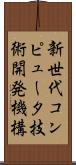 新世代コン
ピュータ技
術開発機構